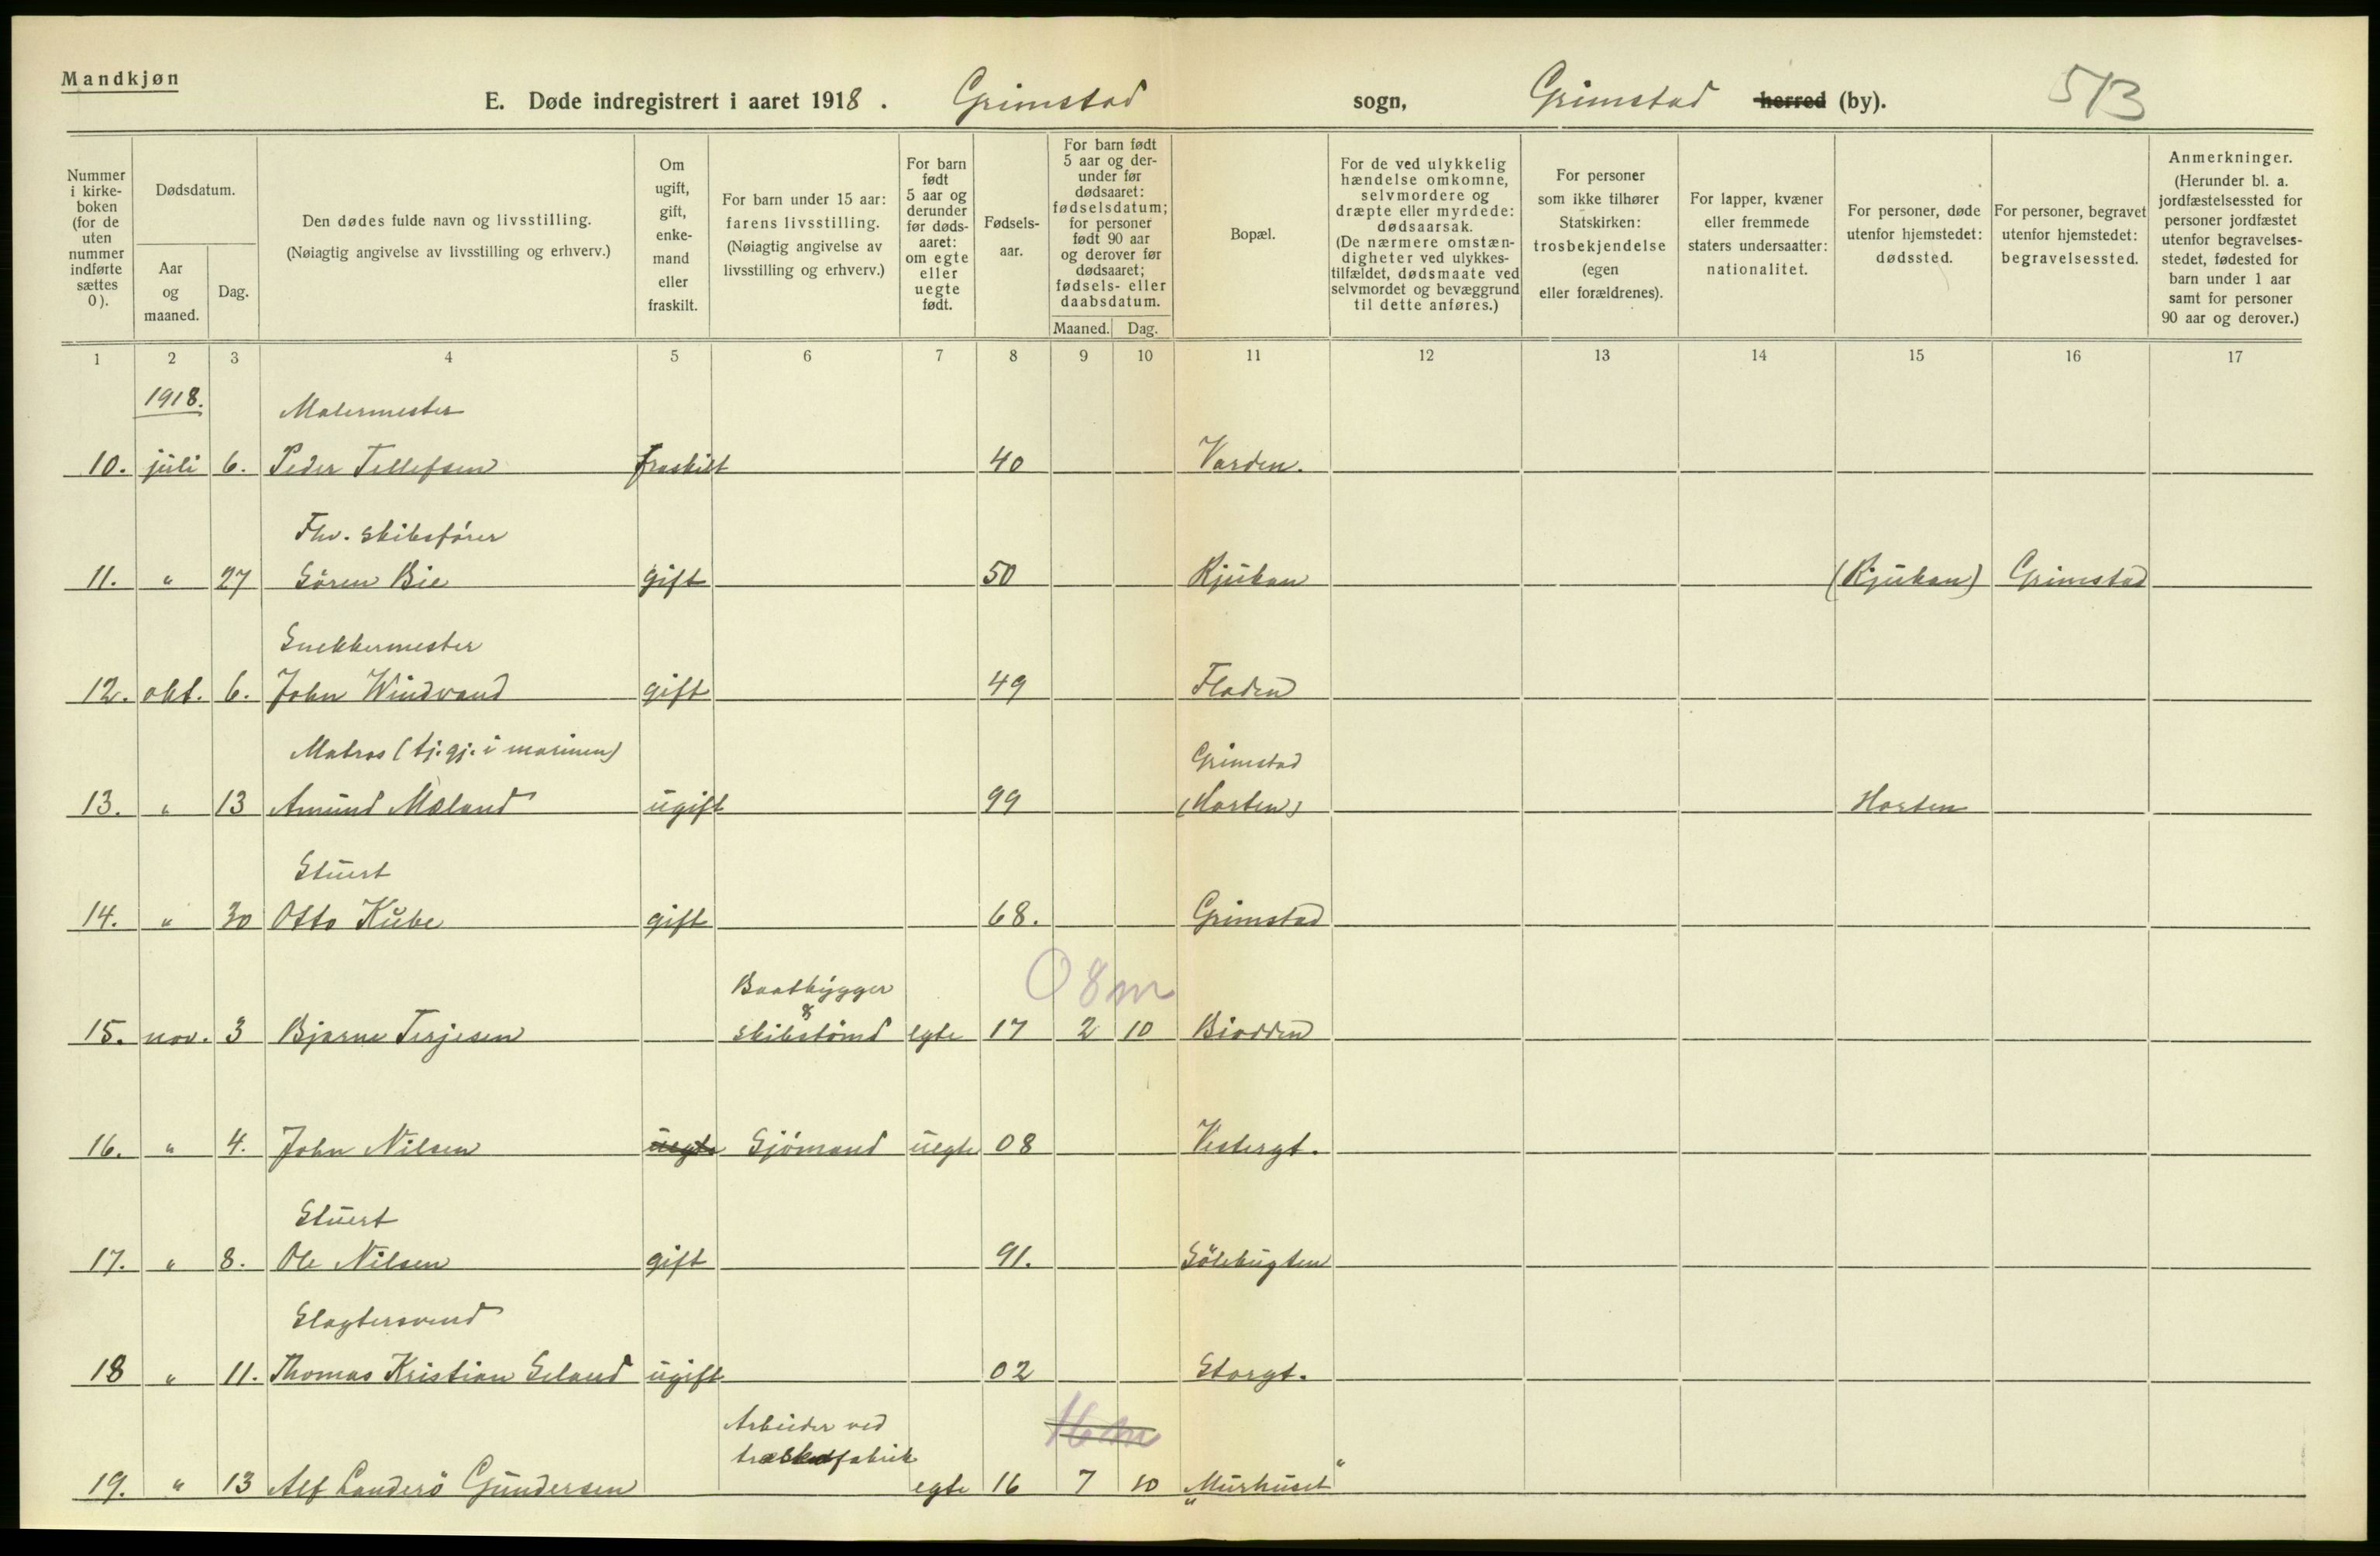 Mandkjøn
E. Døde indregistrert i aaret 1918. Grimstad sogn, Grimstad herred (by). 513
Nummer i kirke-boken (for de uten nummer indførte sættes 0).
Dødsdatum.
Aar og maaned.
Dag.
Den dødes fulde navn og livsstilling.
(Nøiagtig angivelse av livsstilling og erhverv.)
Om ugift, gift, enke-mand eller fraskilt.
For barn under 15 aar: farens livsstilling. (Nøiagtig angivelse av livsstilling og erhverv.)
For barn født 5 aar og derunder før døds-aaret: om egte eller uegte født.
Fødsels-aar.
For barn født 5 aar og der-under før dødsaaret: fødselsdatum; for personer født 90 aar og derover før dødsaaret; fødsels- eller daabsdatum.
Maaned. Dag.
Bopæl.
For de ved ulykkelig hændelse omkomne, selvmordere og dræpte eller myrdede: dødsaarsak. (De nærmere omstæn-digheter ved ulykkes-tilfældet, dødsmaate ved selvmordet og bevæggrund til dette anføres.)
For personer som ikke tilhører Statskirken: trosbekjendelse (egen eller forældrenes).
For lapper, kvæner eller fremmede staters undersaatter: nationalitet.
For personer, døde utenfor hjemstedet: dødssted.
For personer, begravet utenfor hjemstedet: begravelsessted.
Anmerkninger. (Herunder bl. a. jordfæstelsessted for personer jordfæstet utenfor begravelses-stedet, fødested for barn under 1 aar samt for personer 90 aar og derover.)
1 2 3 4 5 6 7 8 9 10 11 12 13 14 15 16 17
1918.
Malermester
10. juli 6. Peder Tellefsen fraskilt 40 Varden.
Fhv. skibsfører
11. " 27 Sören Bie gift 50 Rjukan (Rjukan) Grimstad
Snekkermester
12. okt. 6. John Windvand gift 49 Fladen
Matros (tj.gj. i marinen) Grimstad
13. " 13 Amund Mæland ugift 99 (Horten) Horten
Stuert
14. " 30 Otto Kube gift 68. Grimstad
Baatbygger 08m
&
15. nov. 3 Bjarne Terjesen skibstömd egte 17 2 10 Biodden
16. " 4. John Nilsen uegte Sjömand uegte 08 Vestergt.
Stuert
17. " 8. Ole Nilsen gift 91. Sölebugten
Slagtersvend
18 " 11. Thomas Kristian Eeland ugift 02 Storgt.
Arbeider ved 16m
træskofabrik
19. " 13 Alf Landerö Gundersen egte 16 7 10 "Murhuset"